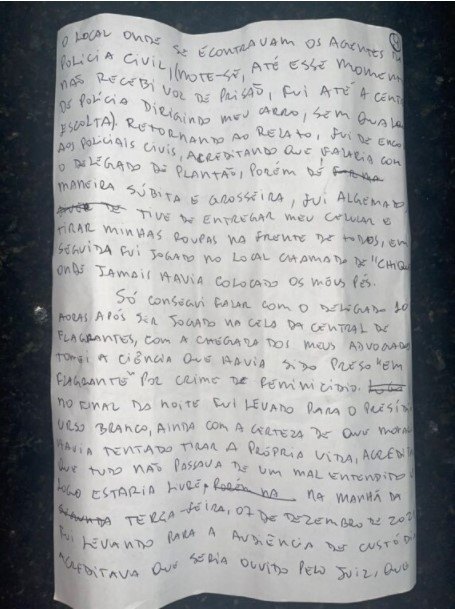 O LOCAL ONDE SE ECONTRAVAM OS AGENTES DA
POLÍCIA CIVIL, (NOTE-SE, ATÉ ESSE MOMENTO
NÃO RECEBI VOZ DE PRISÃO, FUI ATÉ A CENTR
DE POLÍCIA DIRIGINDO MEU CARRO, SEM QUALQ
ESCOLTA). RETORNANDO AO RELATO, FUI DE ENCO
AOS POLICIAIS CIVIS, ACREDITANDO QUE FALARIA COM
O DELEGADO DE PLANTÃO, PORÉM DE FORMA
MANEIRA SÚBITA E GROSSEIRA, FUI ALGEMADO,
TIVE DE ENTREGAR MEU CELULAR E
TIRAR MINHAS ROUPAS NA FRENTE DE TODOS, EM
SEGUIDA FUI JOGADO NO LOCAL CHAMADO DE "CHIQ
ONDE JAMAIS HAVIA COLOCADO OS MEUS PÉS.
SÓ CONSEGUI FALAR COM O DELEGADO 10
HORAS APÓS SER JOGADO NA CELA DA CENTRAL DE
FLAGRANTES, COM A CHEGADA DOS MEUS ADVOGADOS
TOMEI A CIÊNCIA QUE HAVIA SIDO PRESO "EM
FLAGRANTE" POR CRIME DE FEMINICÍDIO.
NO FINAL DA NOITE FUI LEVADO PARA O PRESÍDI
URSO BRANCO, AINDA COM A CERTEZA DE QUE
HAVIA TENTADO TIRAR A PRÓPRIA VIDA, ACREDITA
QUE TUDO NÃO PASSAVA DE UM MAL ENTENDIDO E
LOGO ESTARIA LIVRE, PORÉM NA NA MANHÃ DA
SEGUNDA TERÇA-FEIRA, 07 DE DEZEMBRO DE 202
FUI LEVANDO PARA A AUDIÊNCIA DE CUSTÓDI
ACREDITAVA QUE SERIA OUVIDO PELO JUIZ, QUE